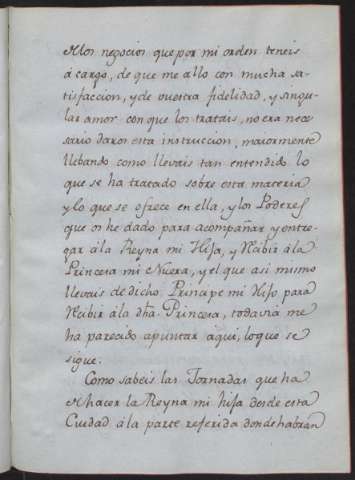 á los negocios que por mi orden teneis
á cargo, de que me allo con mucha sa-
tisfaccion, y de vuestra fidelidad, y singu-
lar amor con que los tratais, no era nece
sario daros esta instruccion, maiormente
llebando como llevais tan entendido lo
que se ha tratado sobre esta materia
y lo que se ofrece en ella, y los Poderes
que os he dado para acompañar y entre-
gar á la Reyna mi Hija, y recibir á la
Princesa mi Nuera, y el que asi mismo
llevais de dicho Principe mi Hijo para
recibir á la dha. Princesa, todavia me
ha parecido apuntar aqui, lo que se
sigue.
Como sabeis las Jornadas que ha
de hacer la Reyna mi hija desde esta
Ciudad á la parte referida donde habran